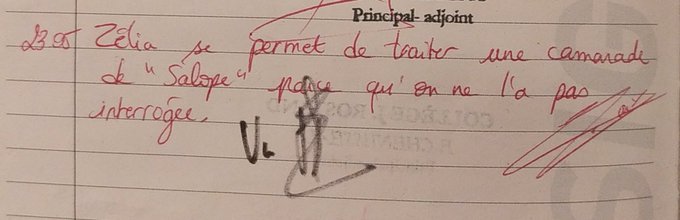 Principal- adjoint
23.05 Zélia se permet de traiter une camarade
de "Salope" parce qu'on ne l'a pas
interrogée.
COLLÈGE J. ROSTAND